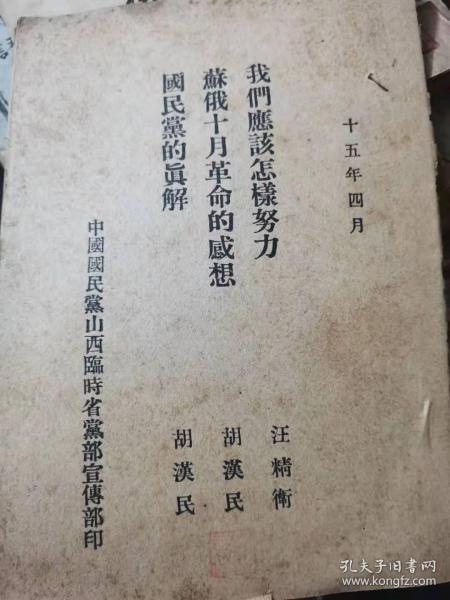 十五年四月
我們應該怎樣努力 汪精衛
蘇俄十月革命的感想 胡漢民
國民黨的眞解 胡漢民
中國國民黨山西臨時省黨部宣傳部印
孔夫子旧书网
www.kongfz.com